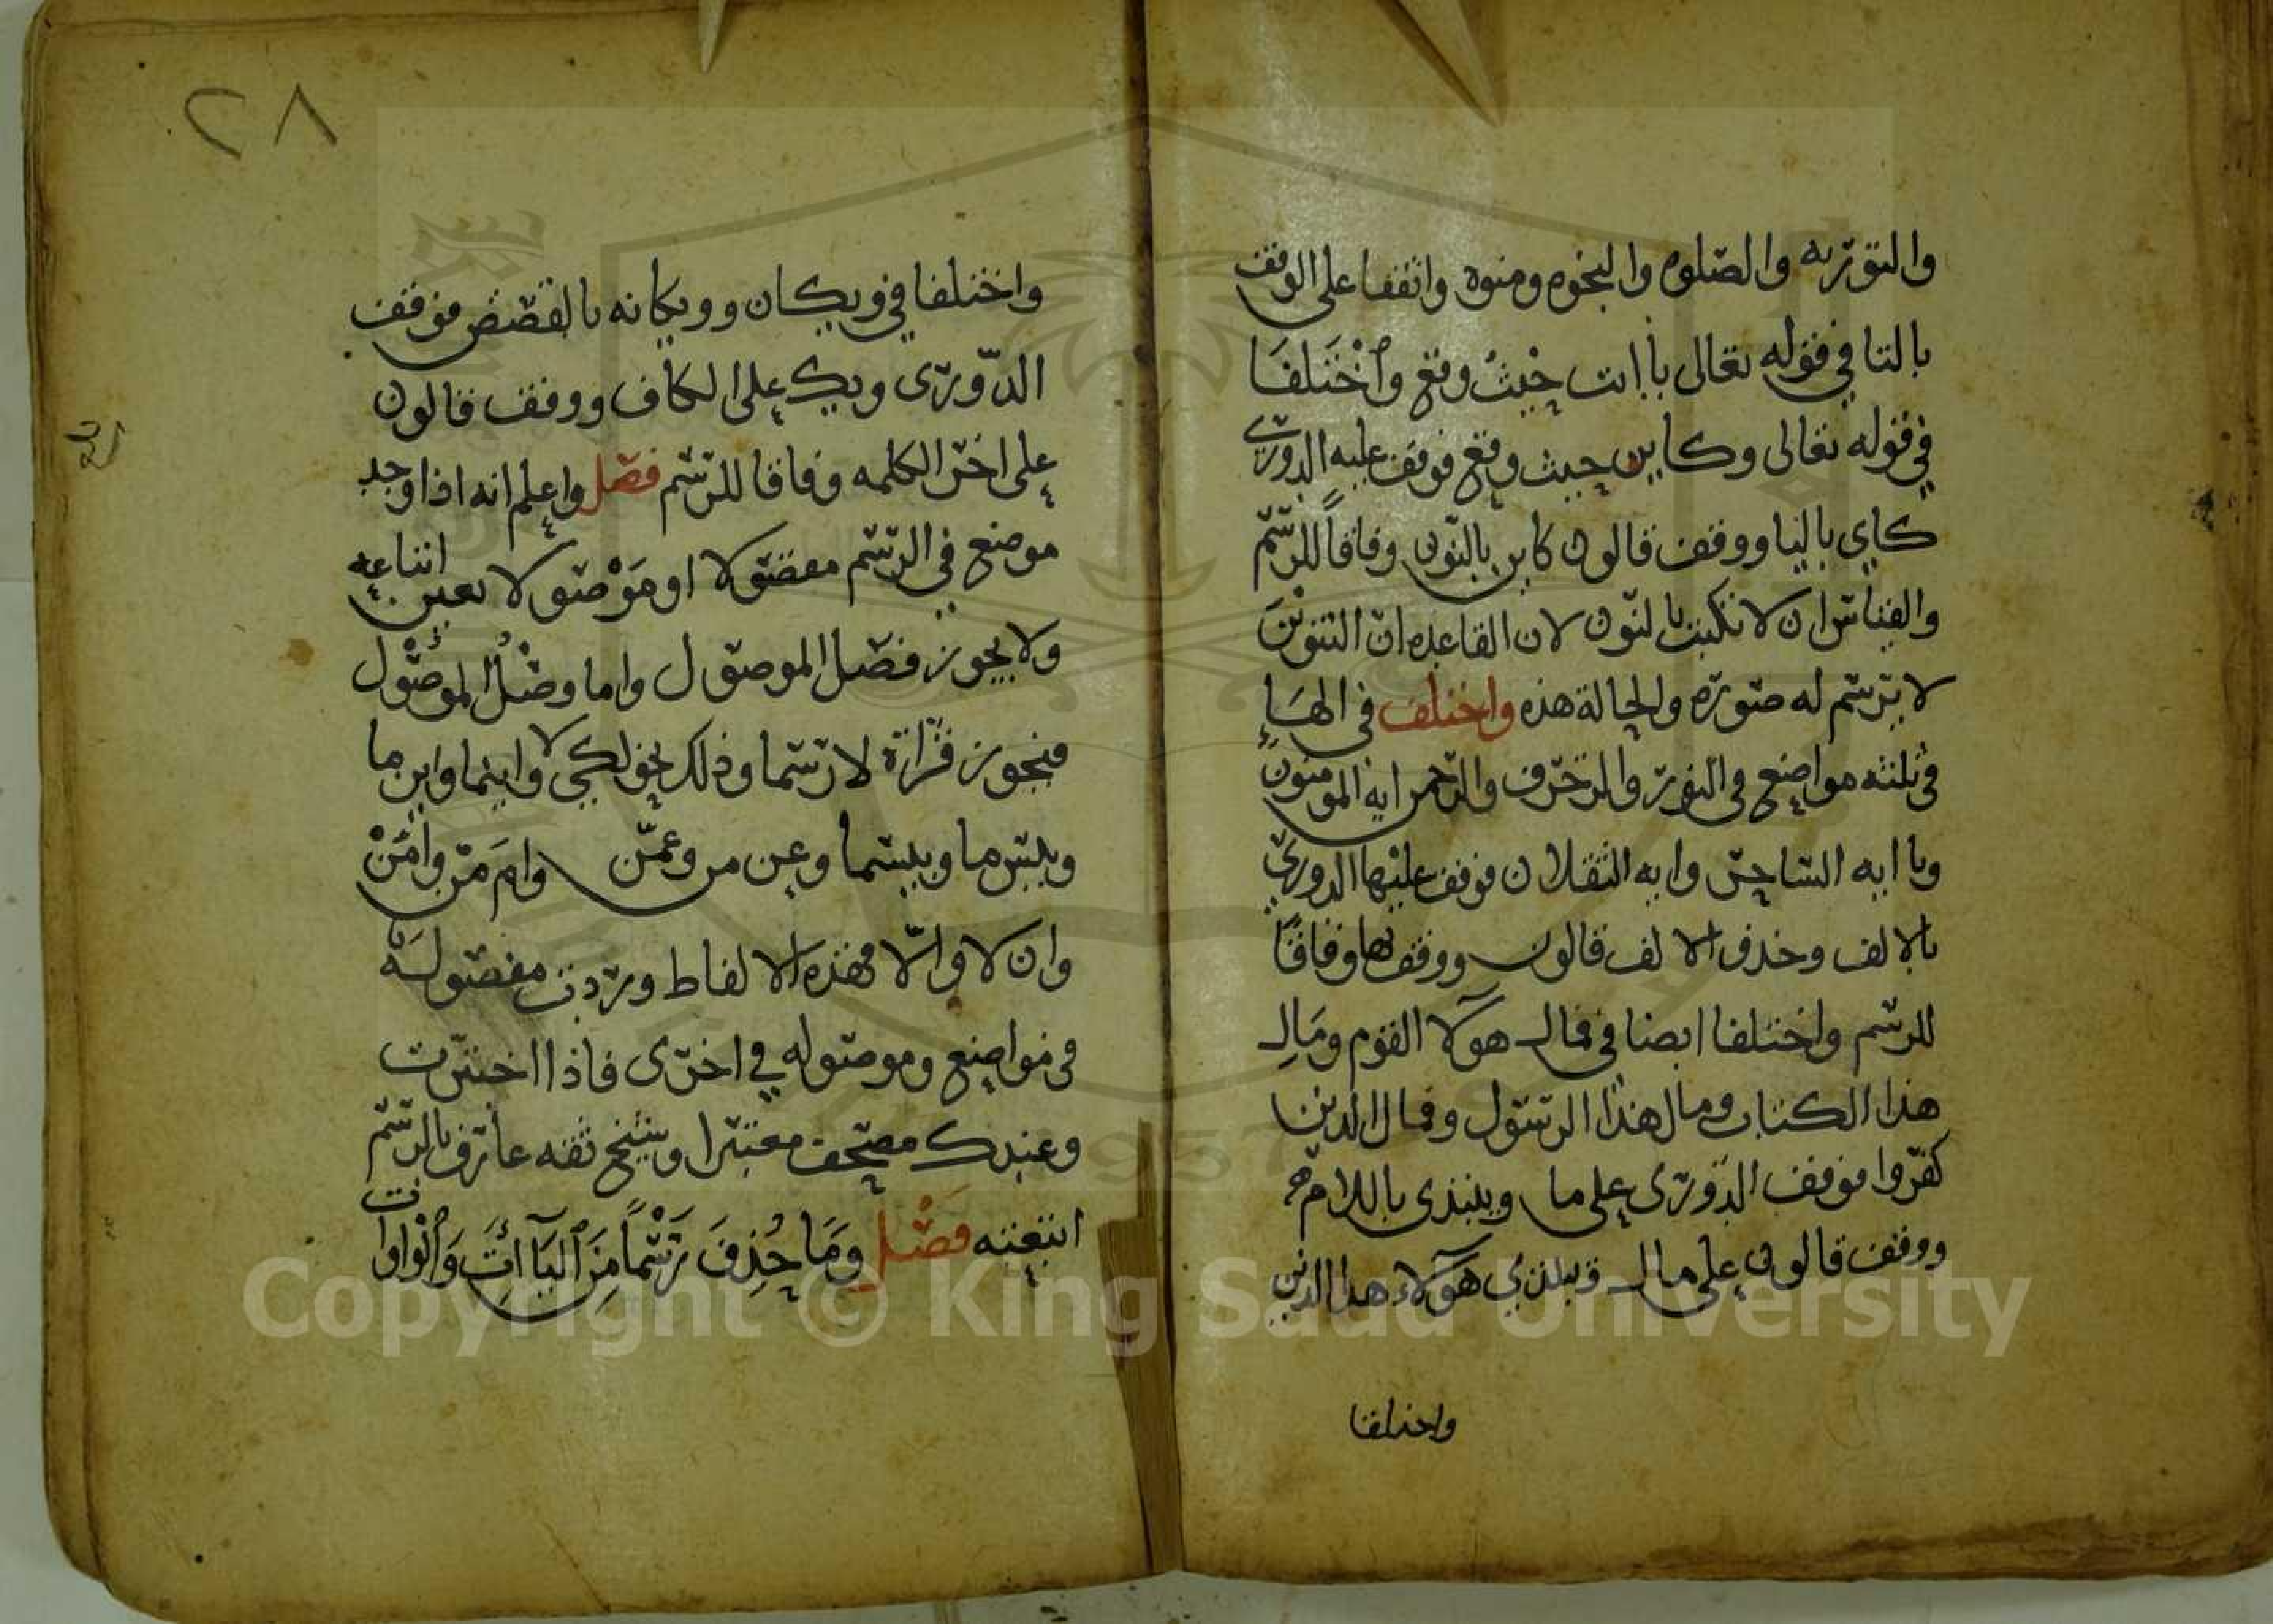 والتوريه والصلوه والنجوه ومنوه واتفقا على الوقف
بالتا في قوله تعالى ياابت حيث وقع وَاخْتَلَفَا
في قوله تعالى وكاين حيث وقع فوقف عليه الدوري
كاي باليا ووقف قالون كاين بالنون وفاقاً للرسم
والقياس ان لا تكتب بالنون لان القاعده ان التنوين
لا يرسم له صوره والحالة هذه واختلف في الهاء
في ثلثه مواضع في النور والزخرف والرحمن ايه المومنون
ويا ايه الساحر وايه الثقلان فوقف عليها الدوري
بالالف وحذف الالف قالون ووقف بها وفاقا
للرسم واختلفا ايضا في فمال هولا القوم ومَالِ
هذا الكتاب ومال هذا الرسول وفمال الذين
كفروا فوقف الدوري على ما ويبتدى باللام
ووقف قالون على مال ويبتدي هولاء هذا الذين
واختلفا
٢٨
واختلفا في ويكان وويكانه بالقصص فوقف
الدّوري ويك على الكاف ووقف قالون
على اخر الكلمه وفاقا للرسم فصل واعلم انه اذا وجد
موضع في الرسم مفصولا او مَوْصولا تعين اتباعه
ولا يجوز فصل الموصول واما وصْلُ الموصُوْل
فيجوز قراءة لا رسما وذلك نحو لكي لا واينما واين ما
وبيس ما وبيسما وعن من وعمّن وام مَن وامَّنْ
وان لا والّا فهذه الالفاظ وردت مفصولَه
في مواضع وموصوله في اخرى فاذا اختبرت
وعندك مصحف معتبرا وشيخ ثقه عارف بالرسم
اتبعته فصْل وَمَا حُذِفَ رَسْماً مِنَ اليَآاتِ وَالْوَاوات